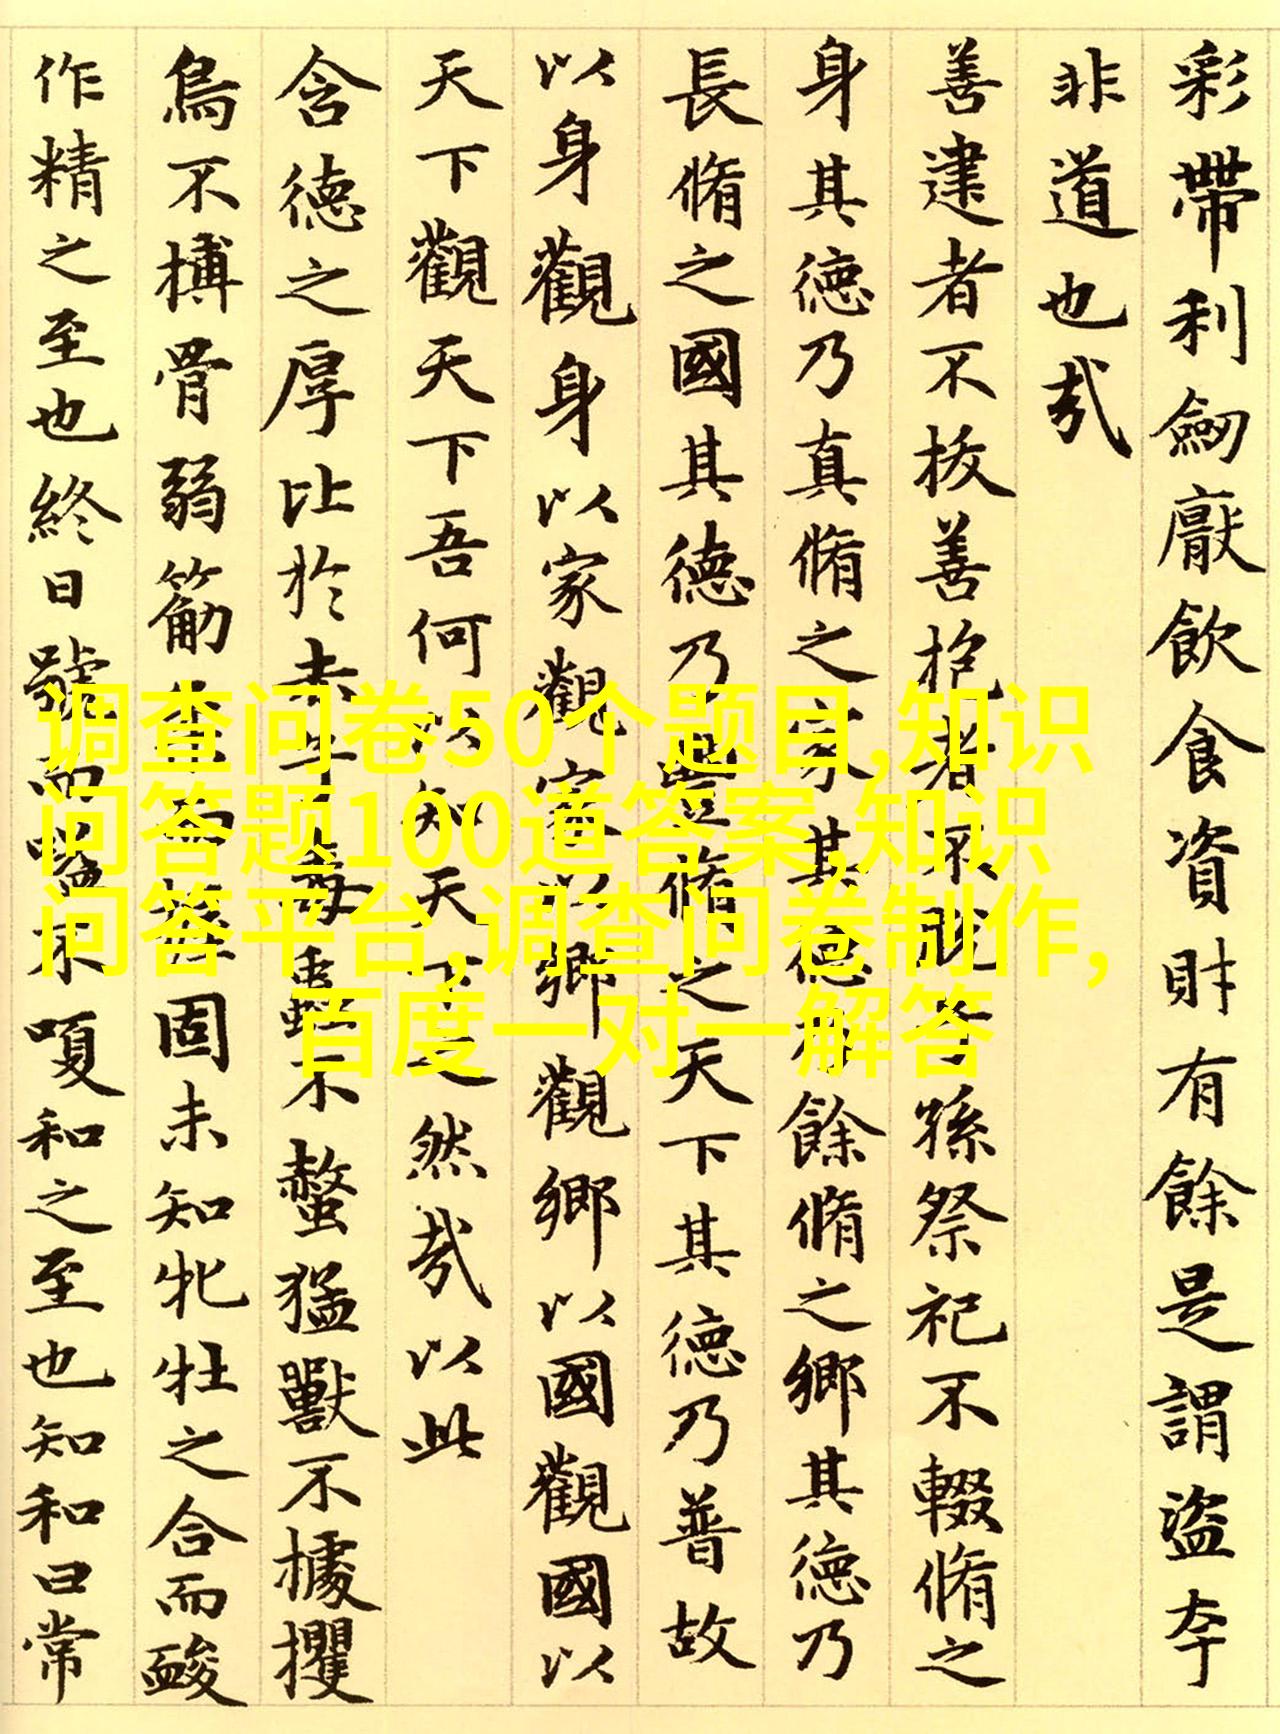 彩帶利劒厭飲食資財有餘是謂盜夸
非道也㦲
善建者不拔善抱者不脫子孫祭祀不輟脩之
身其德乃真脩之家其德有餘脩之鄉其德乃
長脩之國其德乃豐脩之天下其德乃普故
以身觀身以家觀家以鄉觀鄉以國觀國以
天下觀天下吾何以知天下之然㦲以此
含德之厚比於赤子毒蟲不螫猛獸不據攫
鳥不搏骨弱筋柔而握固未知牝牡之合而酸
作精之至也終日號而嗌不嗄和之至也知和曰常
调查问卷50个题目,知识
问答题100道答案,知识
问答平台,调查问卷制作,
百度一对一解答